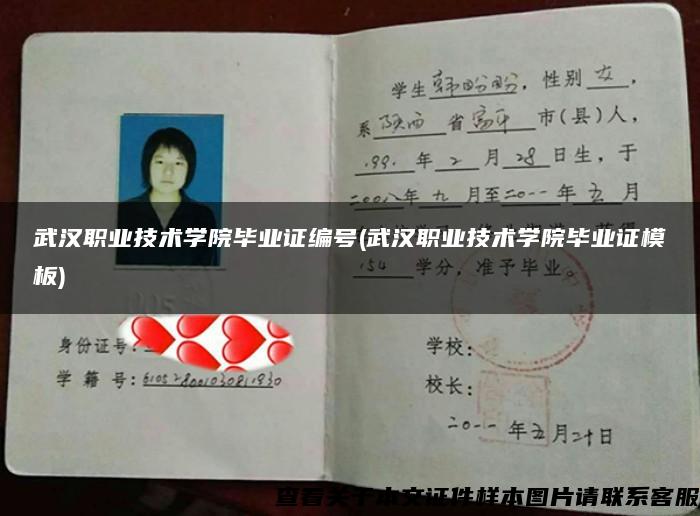 学生韩盼盼，性别女，
系陕西省富平市(县)人，
1991年2月28日生，于
二00八年九月至二0一一年五月
武汉职业技术学院毕业证编号(武汉职业技术学院毕业证模
板)
154学分，准予毕业。
身份证号：
学籍号：
学校：
校长：
二0一一年五月二十日
查看关于本文证件样本图片请联系客服